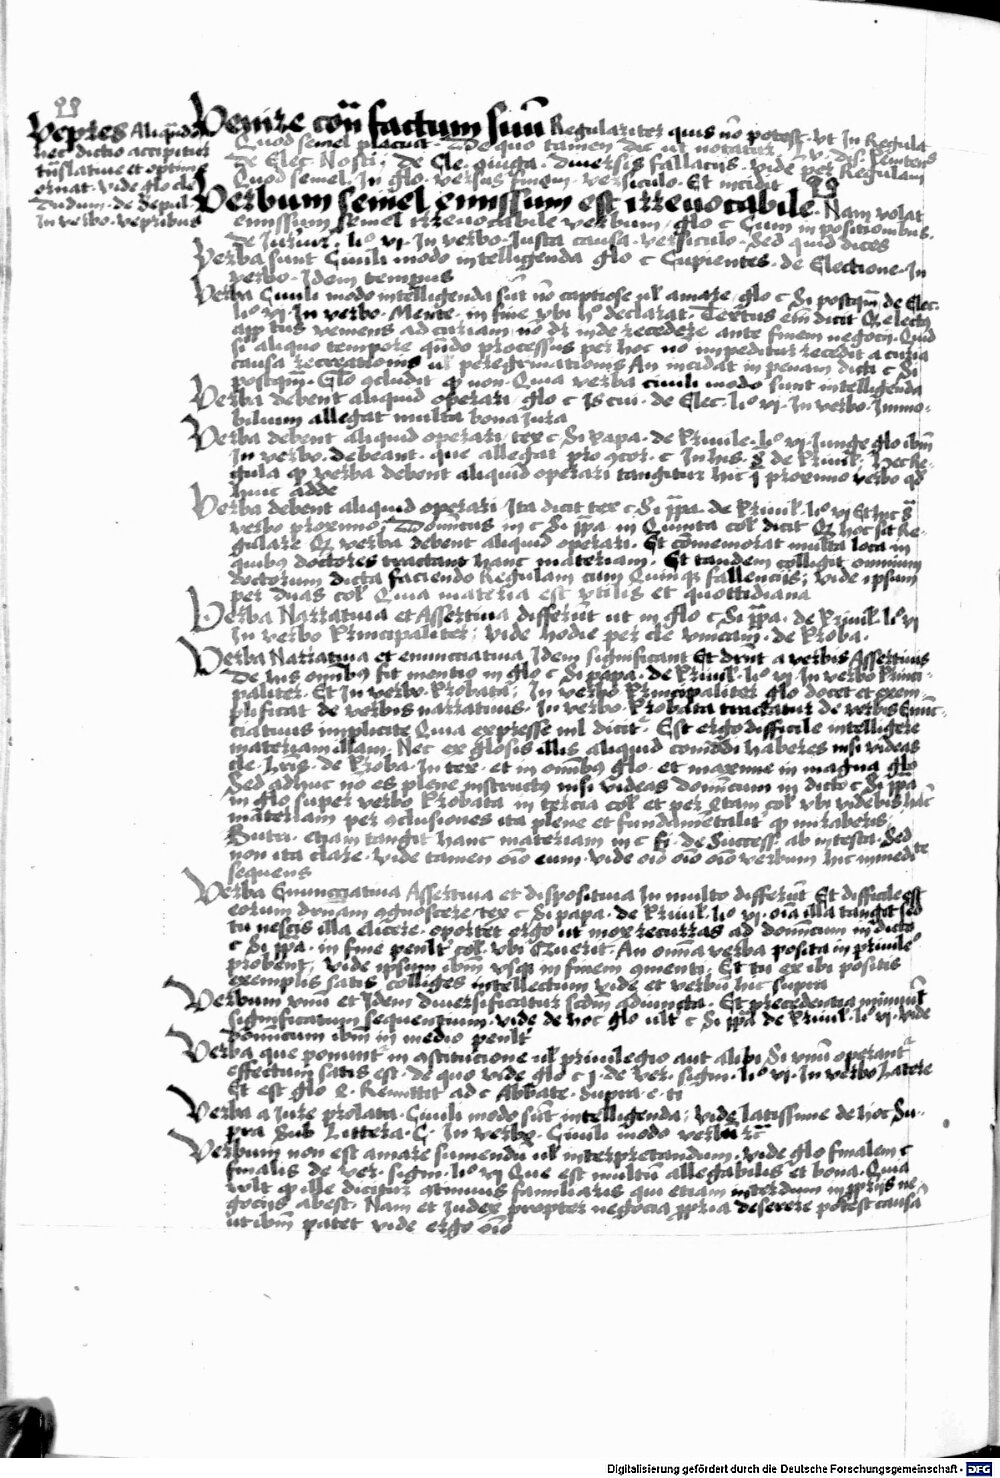 Vepres Aliqn̄do
hec dictio accipitur
tn̄slatiue et optime
ornat. vide glo cle
Dudum. de Sepul
In verbo. vepribus
Venire cōn factum suū Regulariter quis nō potest. vt In Regula
Quod semel placuit. De quo tamen dic ut notatur
De Elec. Nosti; de Cle. diuersis fallacijs. vide per Regulam
Quod semel. In glo. versus finem. versiculo. Et incidit
Verbum semel emissum est irreuocabile. Nam volat
emissum semel irreuocabile verbum. glo c Cum in positionibus.
De Iureiur. li° vi. In verbo. Iusta causa. versiculo. Sed quid dices
Verba sunt Ciuili modo intelligenda glo c Cupientes. de Electione. In
verbo. Idem tempus
Verba Ciuili modo intelligenda sūt nō captiose ul' amare. glo c Si postqm̄ de Elec.
li° vi. In verbo. Mente. in fine vbi h° declarat. Textus em̄ dicit Q electus
app tus veniens ad curiam. nō dz inde recedere ante finem negocij. Quid
si aliquo tempore qn̄do processus per hoc nō impeditur recedit a curia
causa recreationis ul' peregrinationis An incidat in penam dicti c Si
postqm̄. Glo ꝯcludit ꝙ non. Quia verba ciuili modo sunt intelligenda
Verba debent aliquid operari. glo c Is cui. de Elec. li° vi. In verbo. Immo-
bilium allegat multa bona Jura
Verba debent aliquid operari. tex c. Si Papa. de Priuile. li° vi. Iunge glo ibm̄
In verbo. debeant. que allegat pro ꝯcor. c In his. de Priuil. Hec Re-
gula ꝙ verba debent aliquid operari tangitur hic j proximo verbo qd
huic adde
Verba debent aliquid operari. Ita dicit tex c. Si pp̄a. de Priuil. li° vi Et hic s
verbo proximo; Domīcus in c Si pp̄a. in Quinta col' dicit Q hoc sit Re-
gulare Q verba debent aliquid operari. Et cōmemorat multa loca in
quibus doctores tractant hanc materiam. Et tandem colligit omnium
doctorum dicta faciendo Regulam cum Quinqz fallencijs; vide ipsum
per duas col' Quia materia est vtilis et quottidiana
Verba Narratiua et Assertiua differūt ut in glo c Si pp̄a. de Priuil. li° vi
In verbo Principaliter; vide hodie per cle vnicam. de Proba.
Verba Narratiua et enuncciatiua Idem significant Et drn̄t a verbis Assertiuis
De his omībus fit mentio in glo c Si papa. de Priuil. li° vi. In verbo Princi-
paliter. Et In verbo. Probata; In verbo Principaliter glo docet et exem-
plificat de verbis narratiuis. In verbo. Probata tractatur de verbis Enun-
ciatiuis implicite Quia expresse nil dicit. Est ergo difficile intelligere
materiam illam. Nec ex glosis illis aliquid cōmodi haberes nisi videas
cle. Lris. de Proba. In tex. et in omībus glo. et maxime in magna glo
Sed adhuc nō es plene instructus nisi videas domīcum in dicto c Si pp̄a
in glo super verbo Probata in tercia col' et per Qtam col' vbi videbis hāc
materiam per ꝯclusiones ita plene et fundamētalit' ꝙ miraberis.
Butri. etiam tangit hanc materiam in c fi. de Success. ab intesta. Sed
non ita clare. vide tamen oīo eum. vide oīo oīo oīo verbum hic immediate
sequens
Verba Enuncciatiua Assertiua et dispositiua In multo differūt Et difficile est
eorum drn̄am ꝯgnoscere. tex c Si papa. de Priuil. li° vi. oīa illa tangit sed
tu nescis illa elicere. oportet ergo ut mox recurras ad domīcum in dicto
c Si pp̄a. in fine penult' col'. vbi Querit. An omīa verba posita in priuile°
probent; vide ipsum ibm̄ vsqz in finem ꝯmenti. Et tu ex ibi positis
exemplis satis colliges intellectum vide et verbū hic supra
Verbum vnū et Idem diuersificatur scdm̄ adiuncta. Et precedentia minuūt
significatum sequentium. vide de hoc glo ult' c Si pp̄a de Priuil. li° vi. vide
domīcum ibm̄ in medio penult'
Verba que ponunt' in ꝯstitucione ul' priuilegio aut alibi Si vnū operant'
effectum satis est. de quo vide glo c j. de ver. sign. li° vi. In verbo Latere
Et est glo e. Remittit ad c Abbate. supra. e. ti
Verba a Jure prolata. Ciuili modo sūt intelligenda; vide latissime de hoc Su-
pra Sub Littera. C. In verbo. Ciuili modo verbū rc̄
Verbum non est amare sumendū ul' interpretandum. vide glo finalem c
finalis de ver. sign. li° vi Que est multū allegabilis et bona. Quia
vult ꝙ ille dicitur ꝯtinuus familiaris qui etiam interdum in pprijs ne-
gocijs abest. Nam et Iudex propter negocia ppria deserere potest causā
ut ibm̄ patet vide ergo oīo
Digitalisierung gefördert durch die Deutsche Forschungsgemeinschaft - DFG